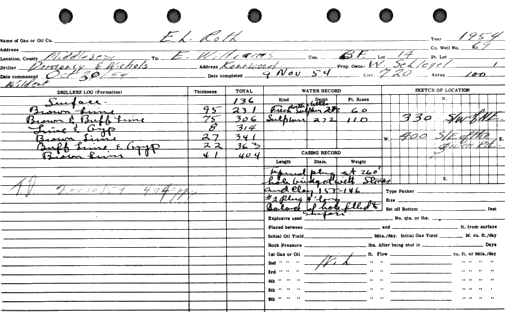 Name of Gas or Oil Co. E.L. Roth Year 1954
Address Co. Well No. 69
Location, County Middlesex Tp. E. Williams Con. BF Lot 14 Pt. Lot
Driller Dempsey & Nichols Address Kerrwood Prop. Owner W. Schlegel 1
Date commenced Oct 30/54 Date completed 9 Nov 54 Elev 720 Acres 100
Wildcat
DRILLERS LOG (Formation) Thickness TOTAL WATER RECORD SKETCH OF LOCATION
Surface 136 Kind Depth Ft. Rises N.
Brown Lime 95 231 Fresh Sulphur 60
Brown & Buff Lime 75 306 Sulphur 272 110 330 S/W/NE
Lime & Gyp 8 314
Brown Lime 27 341 W. 900 S/E
Buff Lime & Gyp 22 363 CASING RECORD
Brown Lime 41 404 Length Diam. Weight
plug at 260' S.
hole bridged with Stones
and Clay Type Packer
#2 Plug Size
Balance of hole filled to Set off Bottom feet
Surface Explosive used No. qts. or lbs.
Placed between and ft. from surface
Initial Oil Yield bbls./day. Initial Gas Yield M. cu. ft./day
Rock Pressure lbs. After being shut in Days
1st Gas or Oil ft. Flow cu. ft. or bbls./day
2nd " " Nil " " " "
3rd " " " " " "
4th " " " " " "
5th " " " " " "
6th " " " " " "